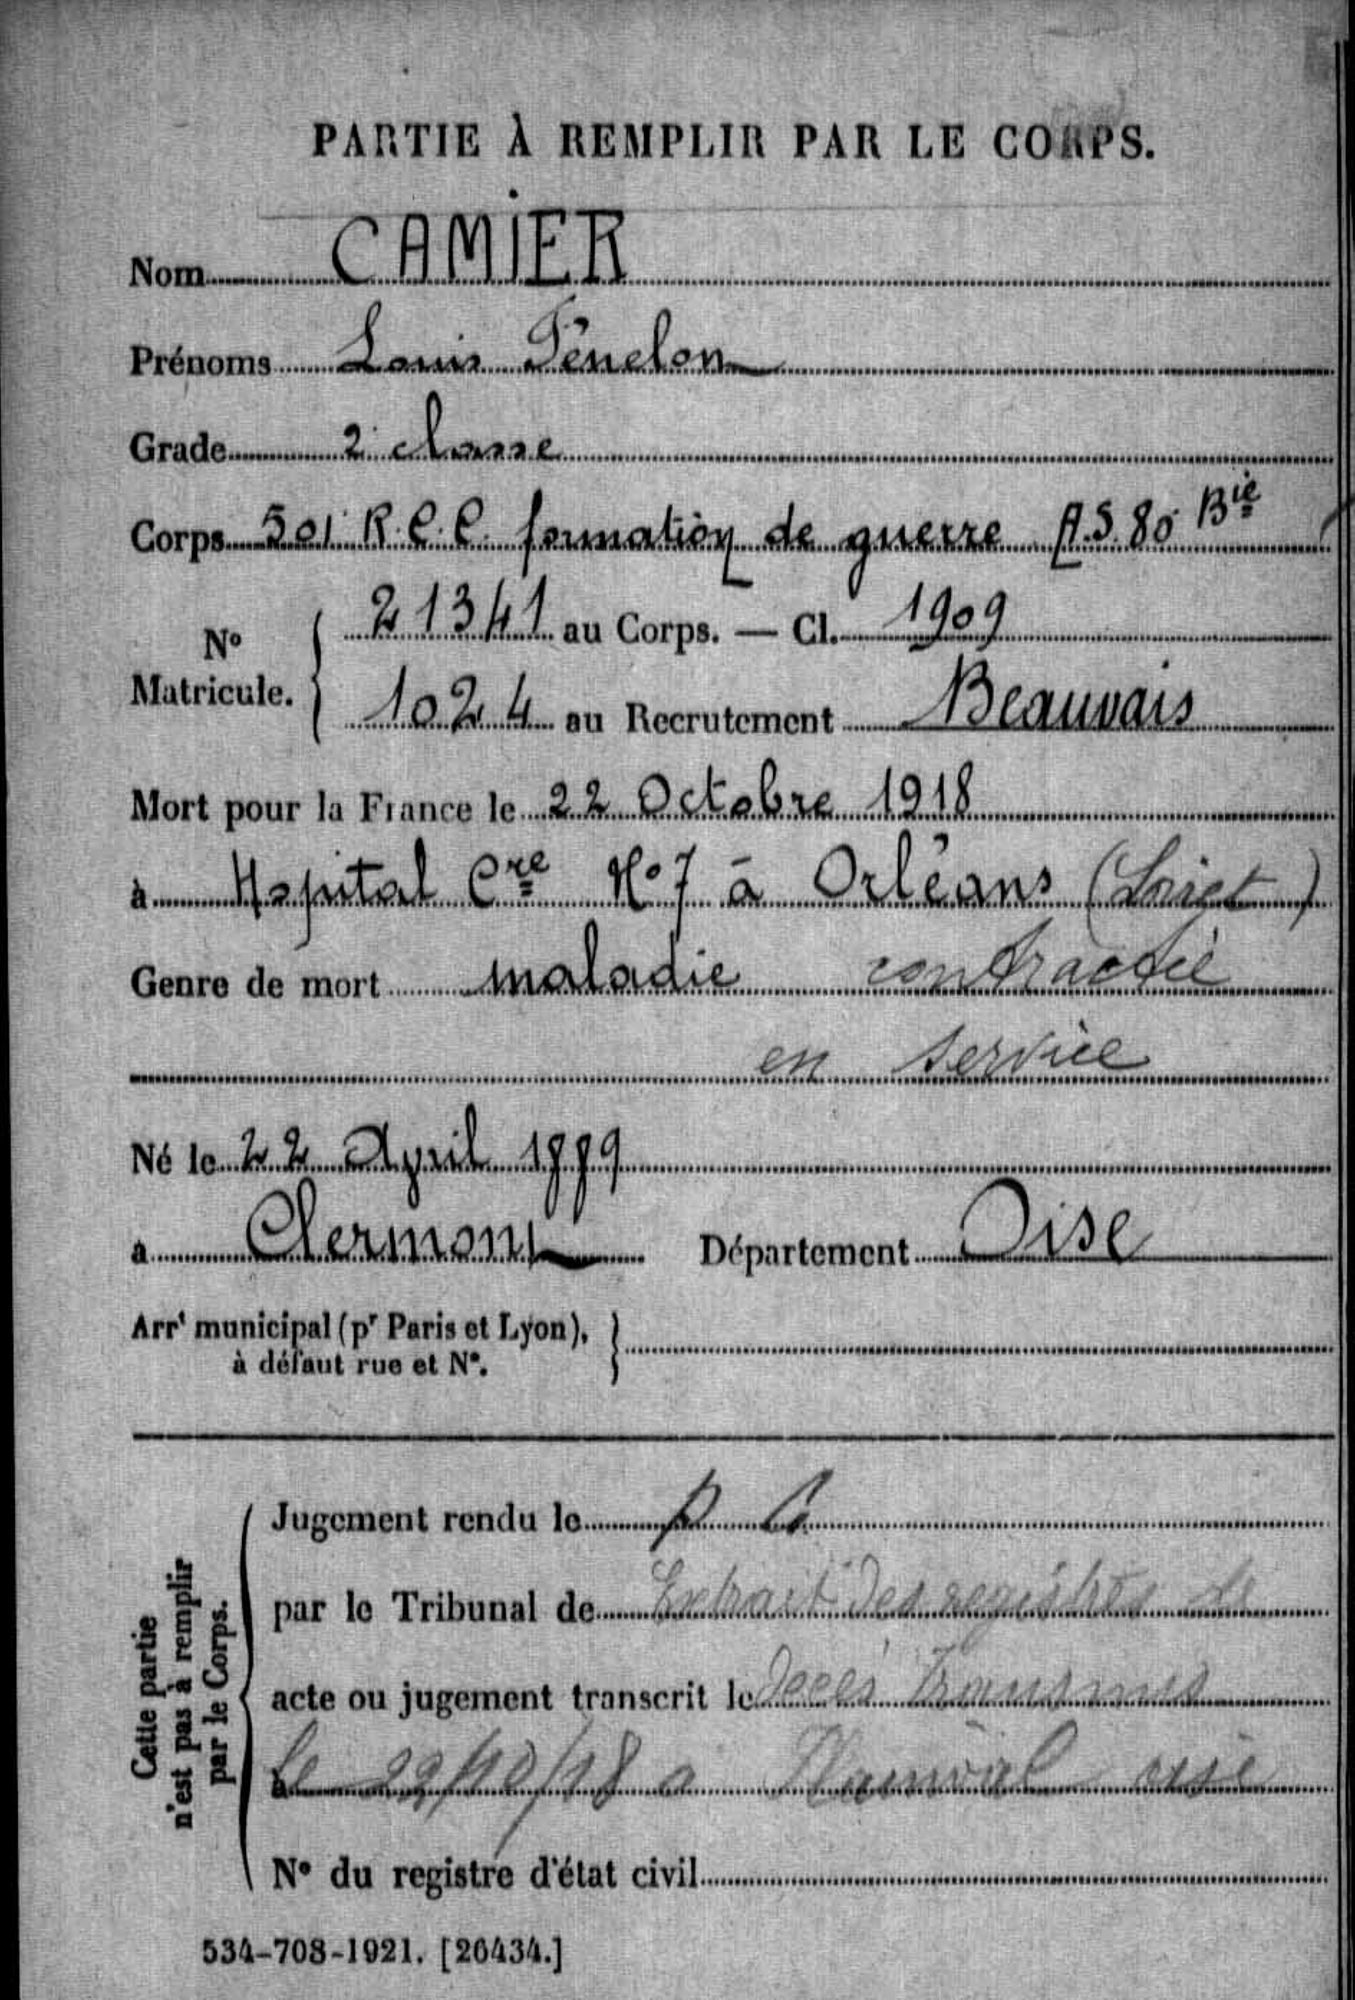 PARTIE À REMPLIR PAR LE CORPS.
Nom CAMIER
Prénoms Louis Fénelon
Grade 2e classe
Corps 501 R.C.C. formation de guerre A.S. 80 Bie
No Matricule. 21341 au Corps. — Cl. 1909
1024 au Recrutement Beauvais
Mort pour la France le 22 Octobre 1918
à Hopital Cre No 7 à Orléans (Loiret)
Genre de mort maladie contractée
en service
Né le 22 April 1889
à Clermont Département Oise
Arrt municipal (pr Paris et Lyon),
à défaut rue et No.
Cette partie
n'est pas à remplir
par le Corps.
Jugement rendu le
par le Tribunal de Extrait des registres de
acte ou jugement transcrit le Décès transmis
le 29/10/18 a oise
No du registre d'état civil
534-708-1921. [26434.]